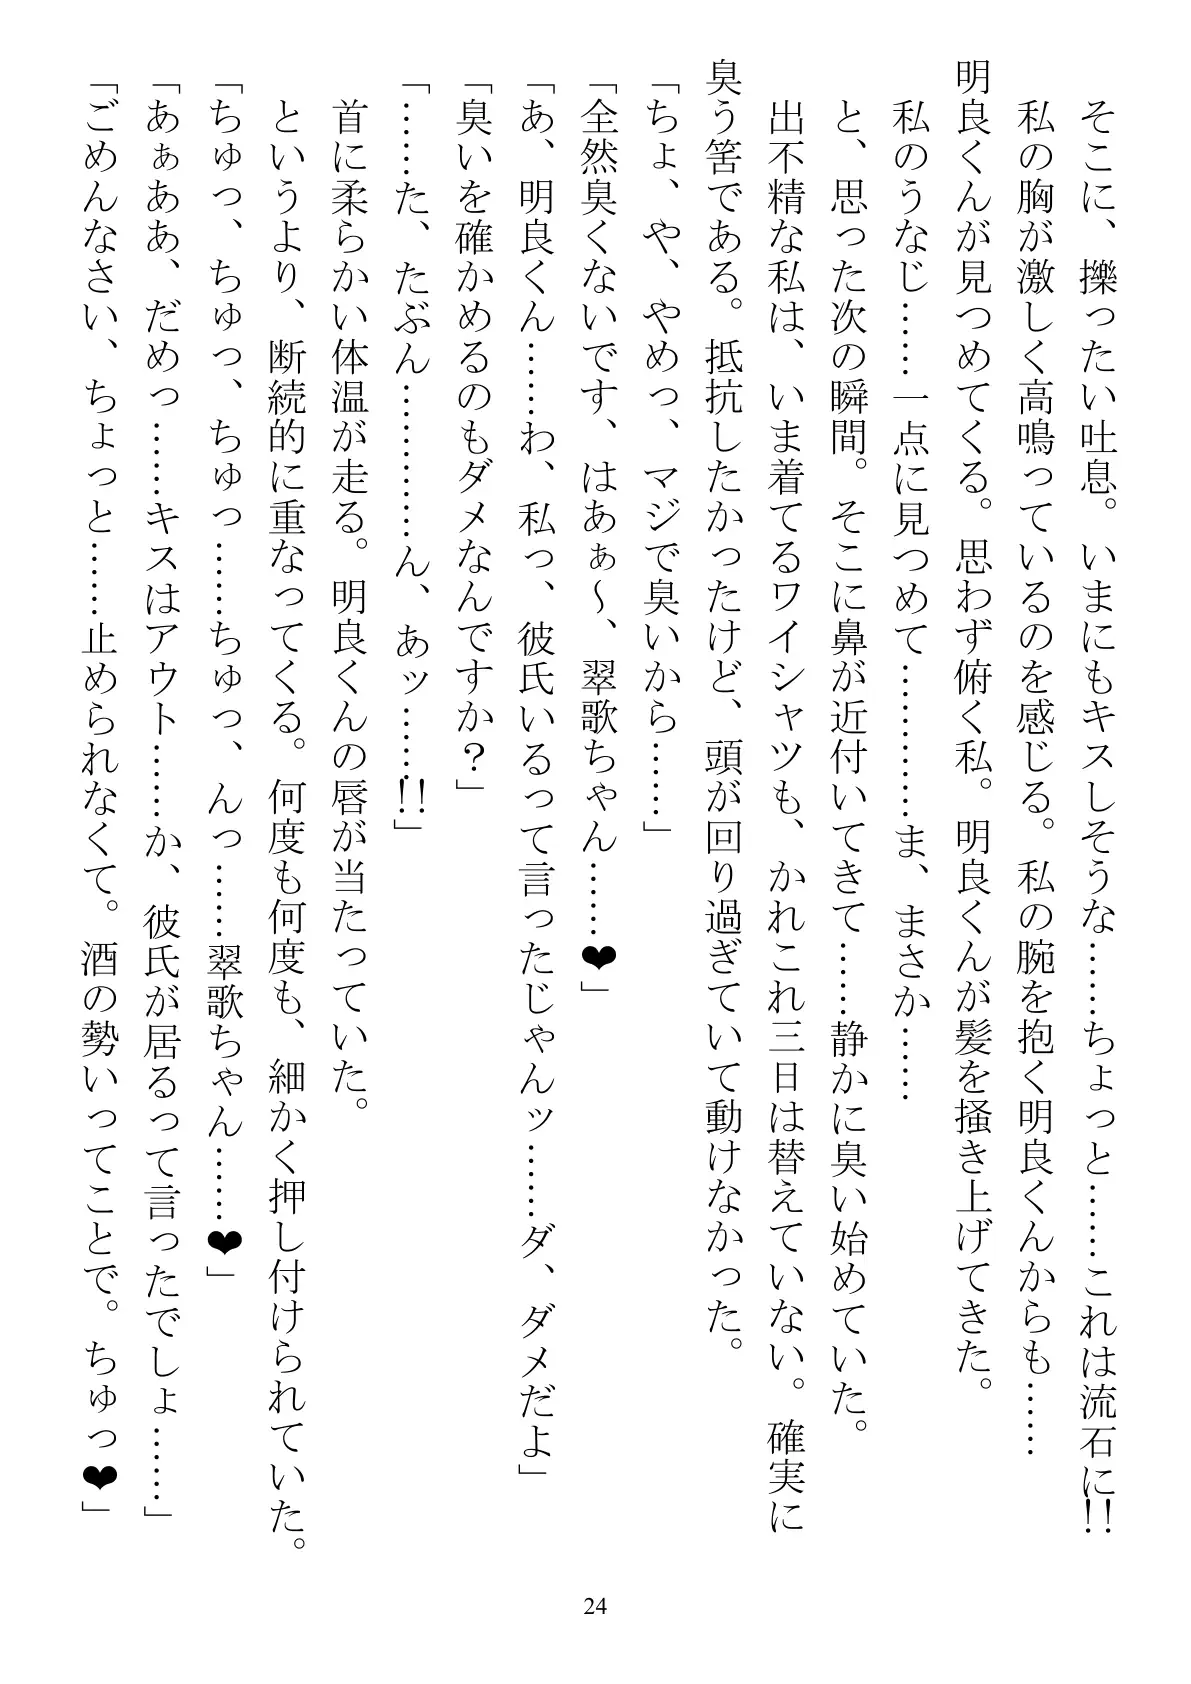 そこに、擽ったい吐息。いまにもキスしそうな……ちょっと……これは流石に!!
私の胸が激しく高鳴っているのを感じる。私の腕を抱く明良くんからも……
明良くんが見つめてくる。思わず俯く私。明良くんが髪を掻き上げてきた。
私のうなじ……一点に見つめて…………ま、まさか……
と、思った次の瞬間。そこに鼻が近付いてきて……静かに臭い始めていた。
出不精な私は、いま着てるワイシャツも、かれこれ三日は替えていない。確実に
臭う筈である。抵抗したかったけど、頭が回り過ぎていて動けなかった。
「ちょ、や、やめっ、マジで臭いから……」
「全然臭くないです、はあぁ～、翠歌ちゃん……❤」
「あ、明良くん……わ、私っ、彼氏いるって言ったじゃんッ……ダ、ダメだよ」
「臭いを確かめるのもダメなんですか？」
「……た、たぶん…………ん、あッ……!!」
首に柔らかい体温が走る。明良くんの唇が当たっていた。
というより、断続的に重なってくる。何度も何度も、細かく押し付けられていた。
「ちゅっ、ちゅっ、ちゅっ……ちゅっ、んっ……翠歌ちゃん……❤」
「あぁああ、だめっ……キスはアウト……か、彼氏が居るって言ったでしょ……」
「ごめんなさい、ちょっと……止められなくて。酒の勢いってことで。ちゅっ❤」
24